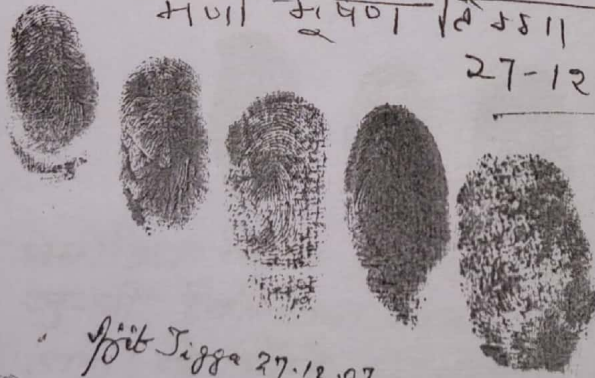 मणी भूषण
27-12
Ajit Tigga 27.12.07